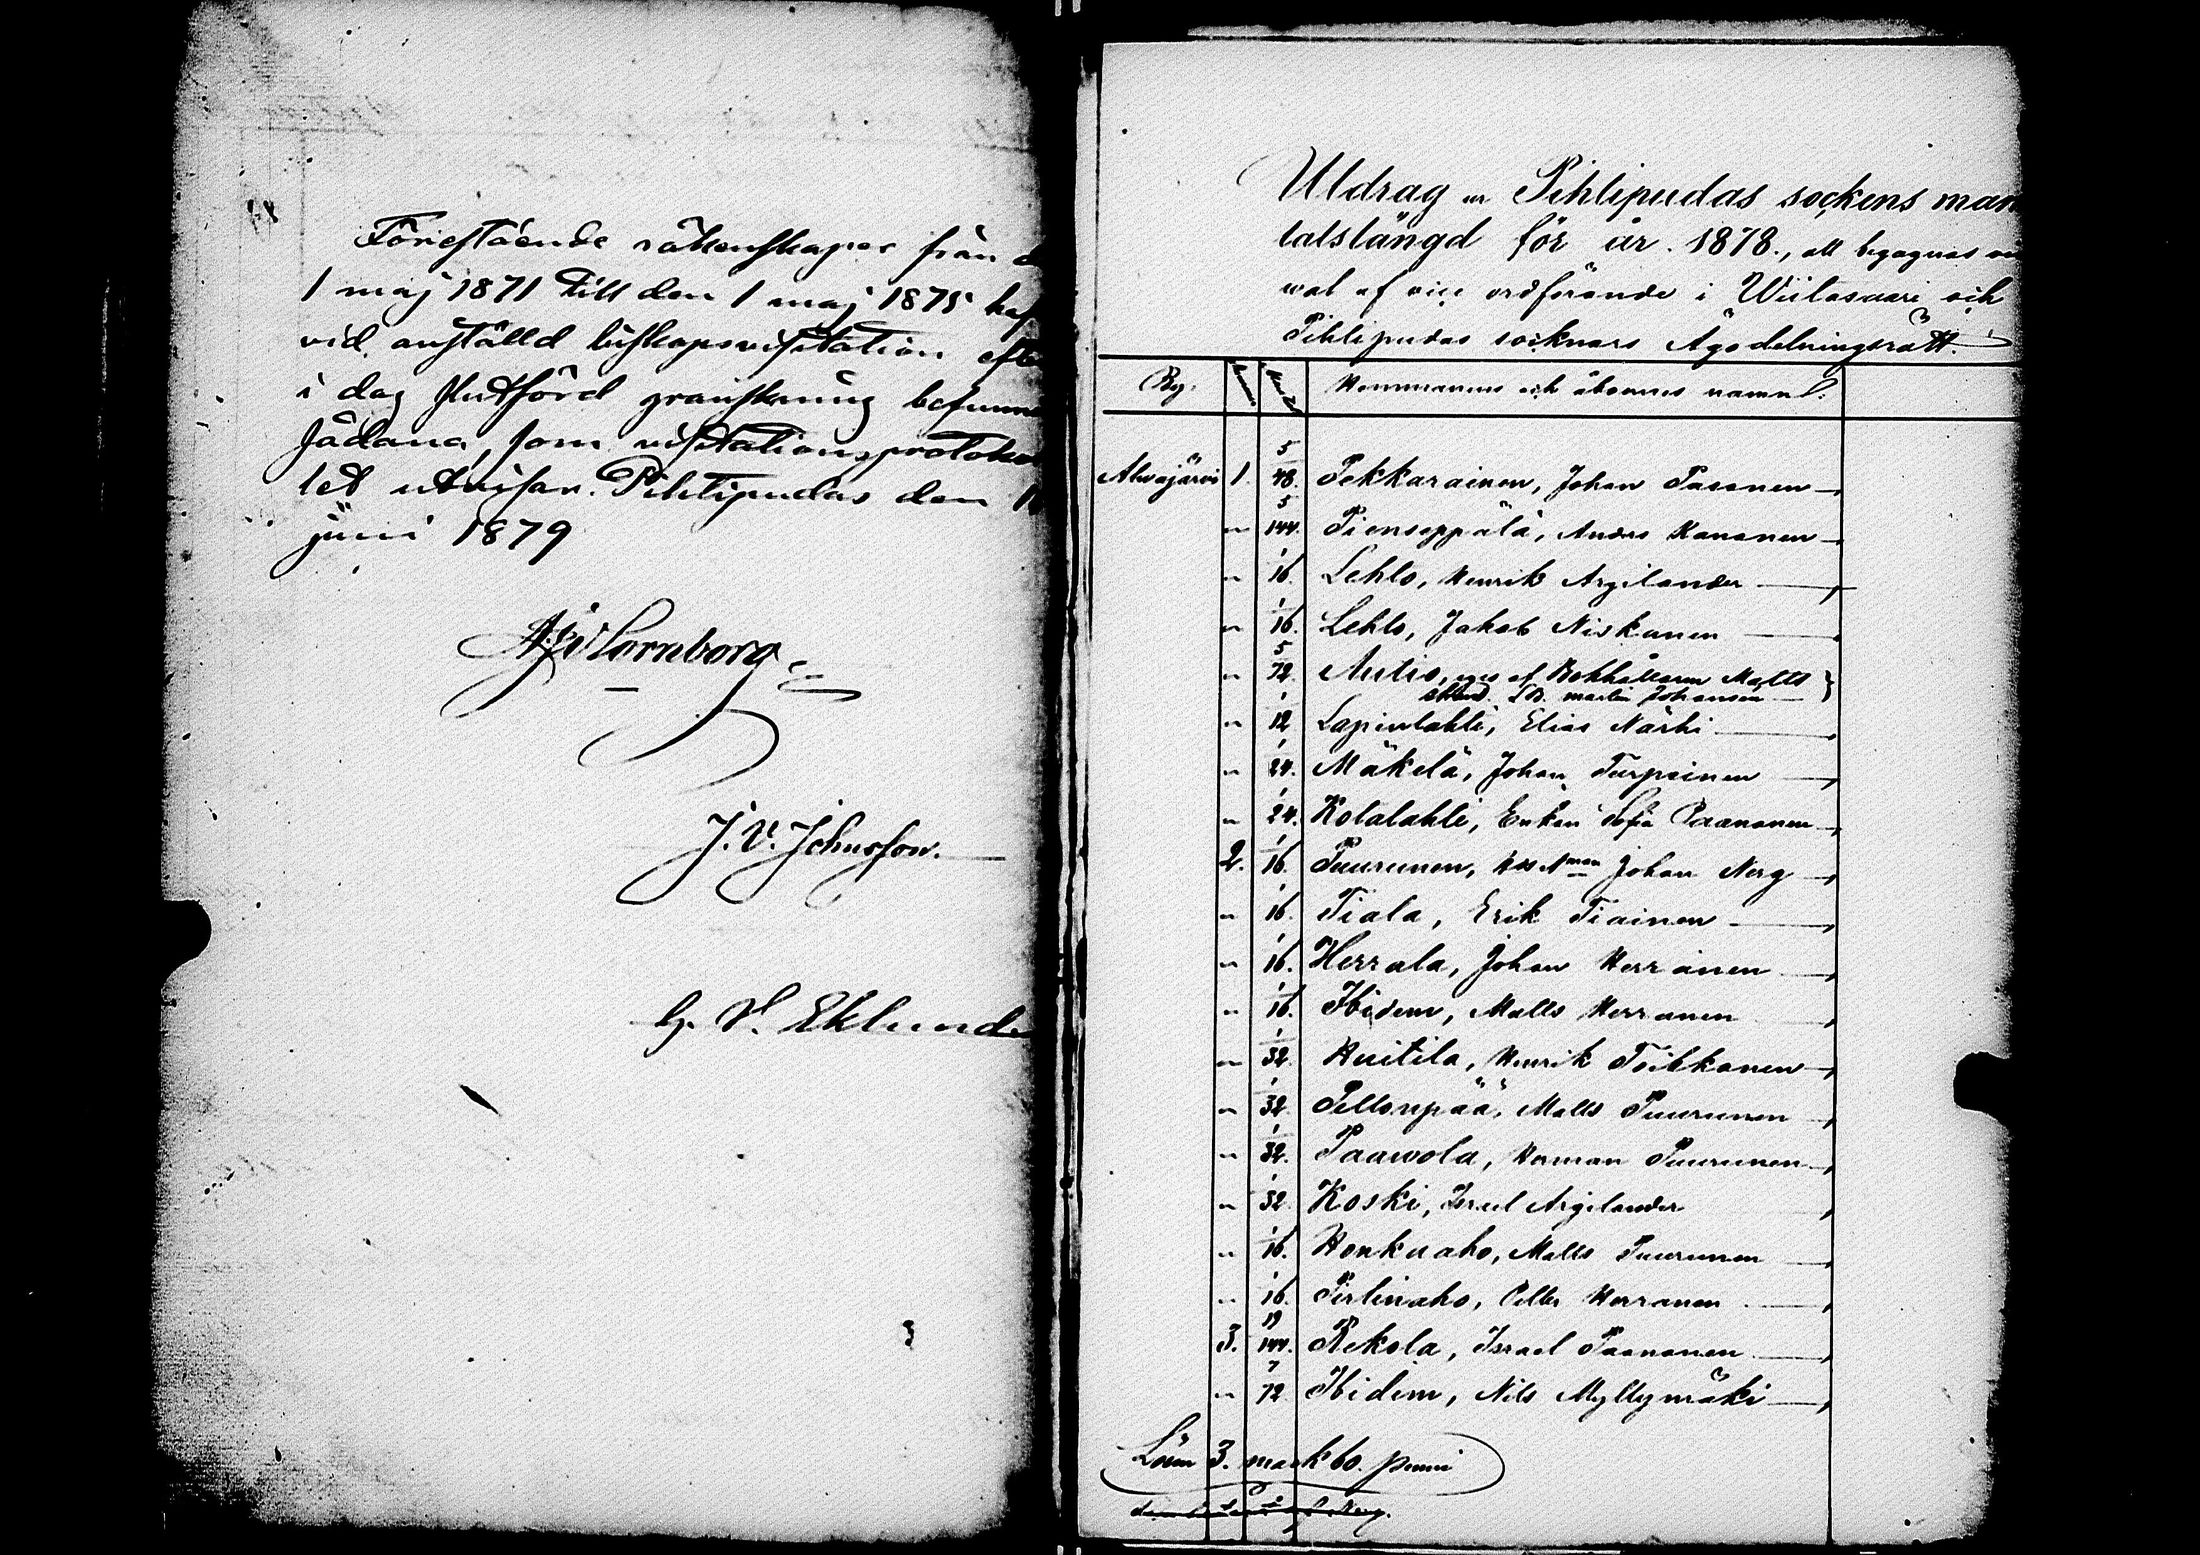 Förestående räkenskaper från d
1 maj 1871 till den 1 maj 1875 haf
vid anställd biskopsvisitation efte
i dag slutförd granskning befunn
sådana, som visitationsprotokol
let utvisar. Pihtipudas den 1
juni 1879
Hornborg
J. V. Johnsson.
G. V. Eklund
Utdrag ur Pihlipudas sockens man
talslängd för år 1878., att begagnas vi
wal af vice ordförande i Wiitasaari och
Pihlipudas socknars Ägodelningsrätt.
By. Hemmanens och åboernes namn.
Alwajärvi 1. 5/48. Pekkarainen, Johan Pasanen
" 5/144. Pienseppälä, Anders Kananen
" 1/16. Lehto, Henrik Argilander
" 1/16. Lehto, Jakob Niskanen
" 5/72. Autio, eges af Bokhållaren Matts
Johansson
" 1/12 Lapinlahti, Elias Närhi
" 1/24. Mäkelä, Johan Turpeinen
" 1/24. Kotalahti, Enkan Sofia Paananen
2. 1/16. Puurunen, Johan Nerg
" 1/16. Tiala, Erik Tiainen
" 1/16. Herrala, Johan Herranen
" 1/16. Ibidem, Matts Herranen
" 1/32. Huitila, Henrik Toikkanen
" 1/32. Pellonpää, Matts Puurunen
" 1/32. Paawola, Herman Puurunen
" 1/32. Koski, Israel Argilander
" 1/16. Honkuaho, Matts Puurunen
" 1/16. Pirtinaho, Petter Herranen
3. 19/144. Rekola, Israel Paananen
" 7/72 Ibidem, Nils Myllymäki
Lösen 3. mark 60. penni